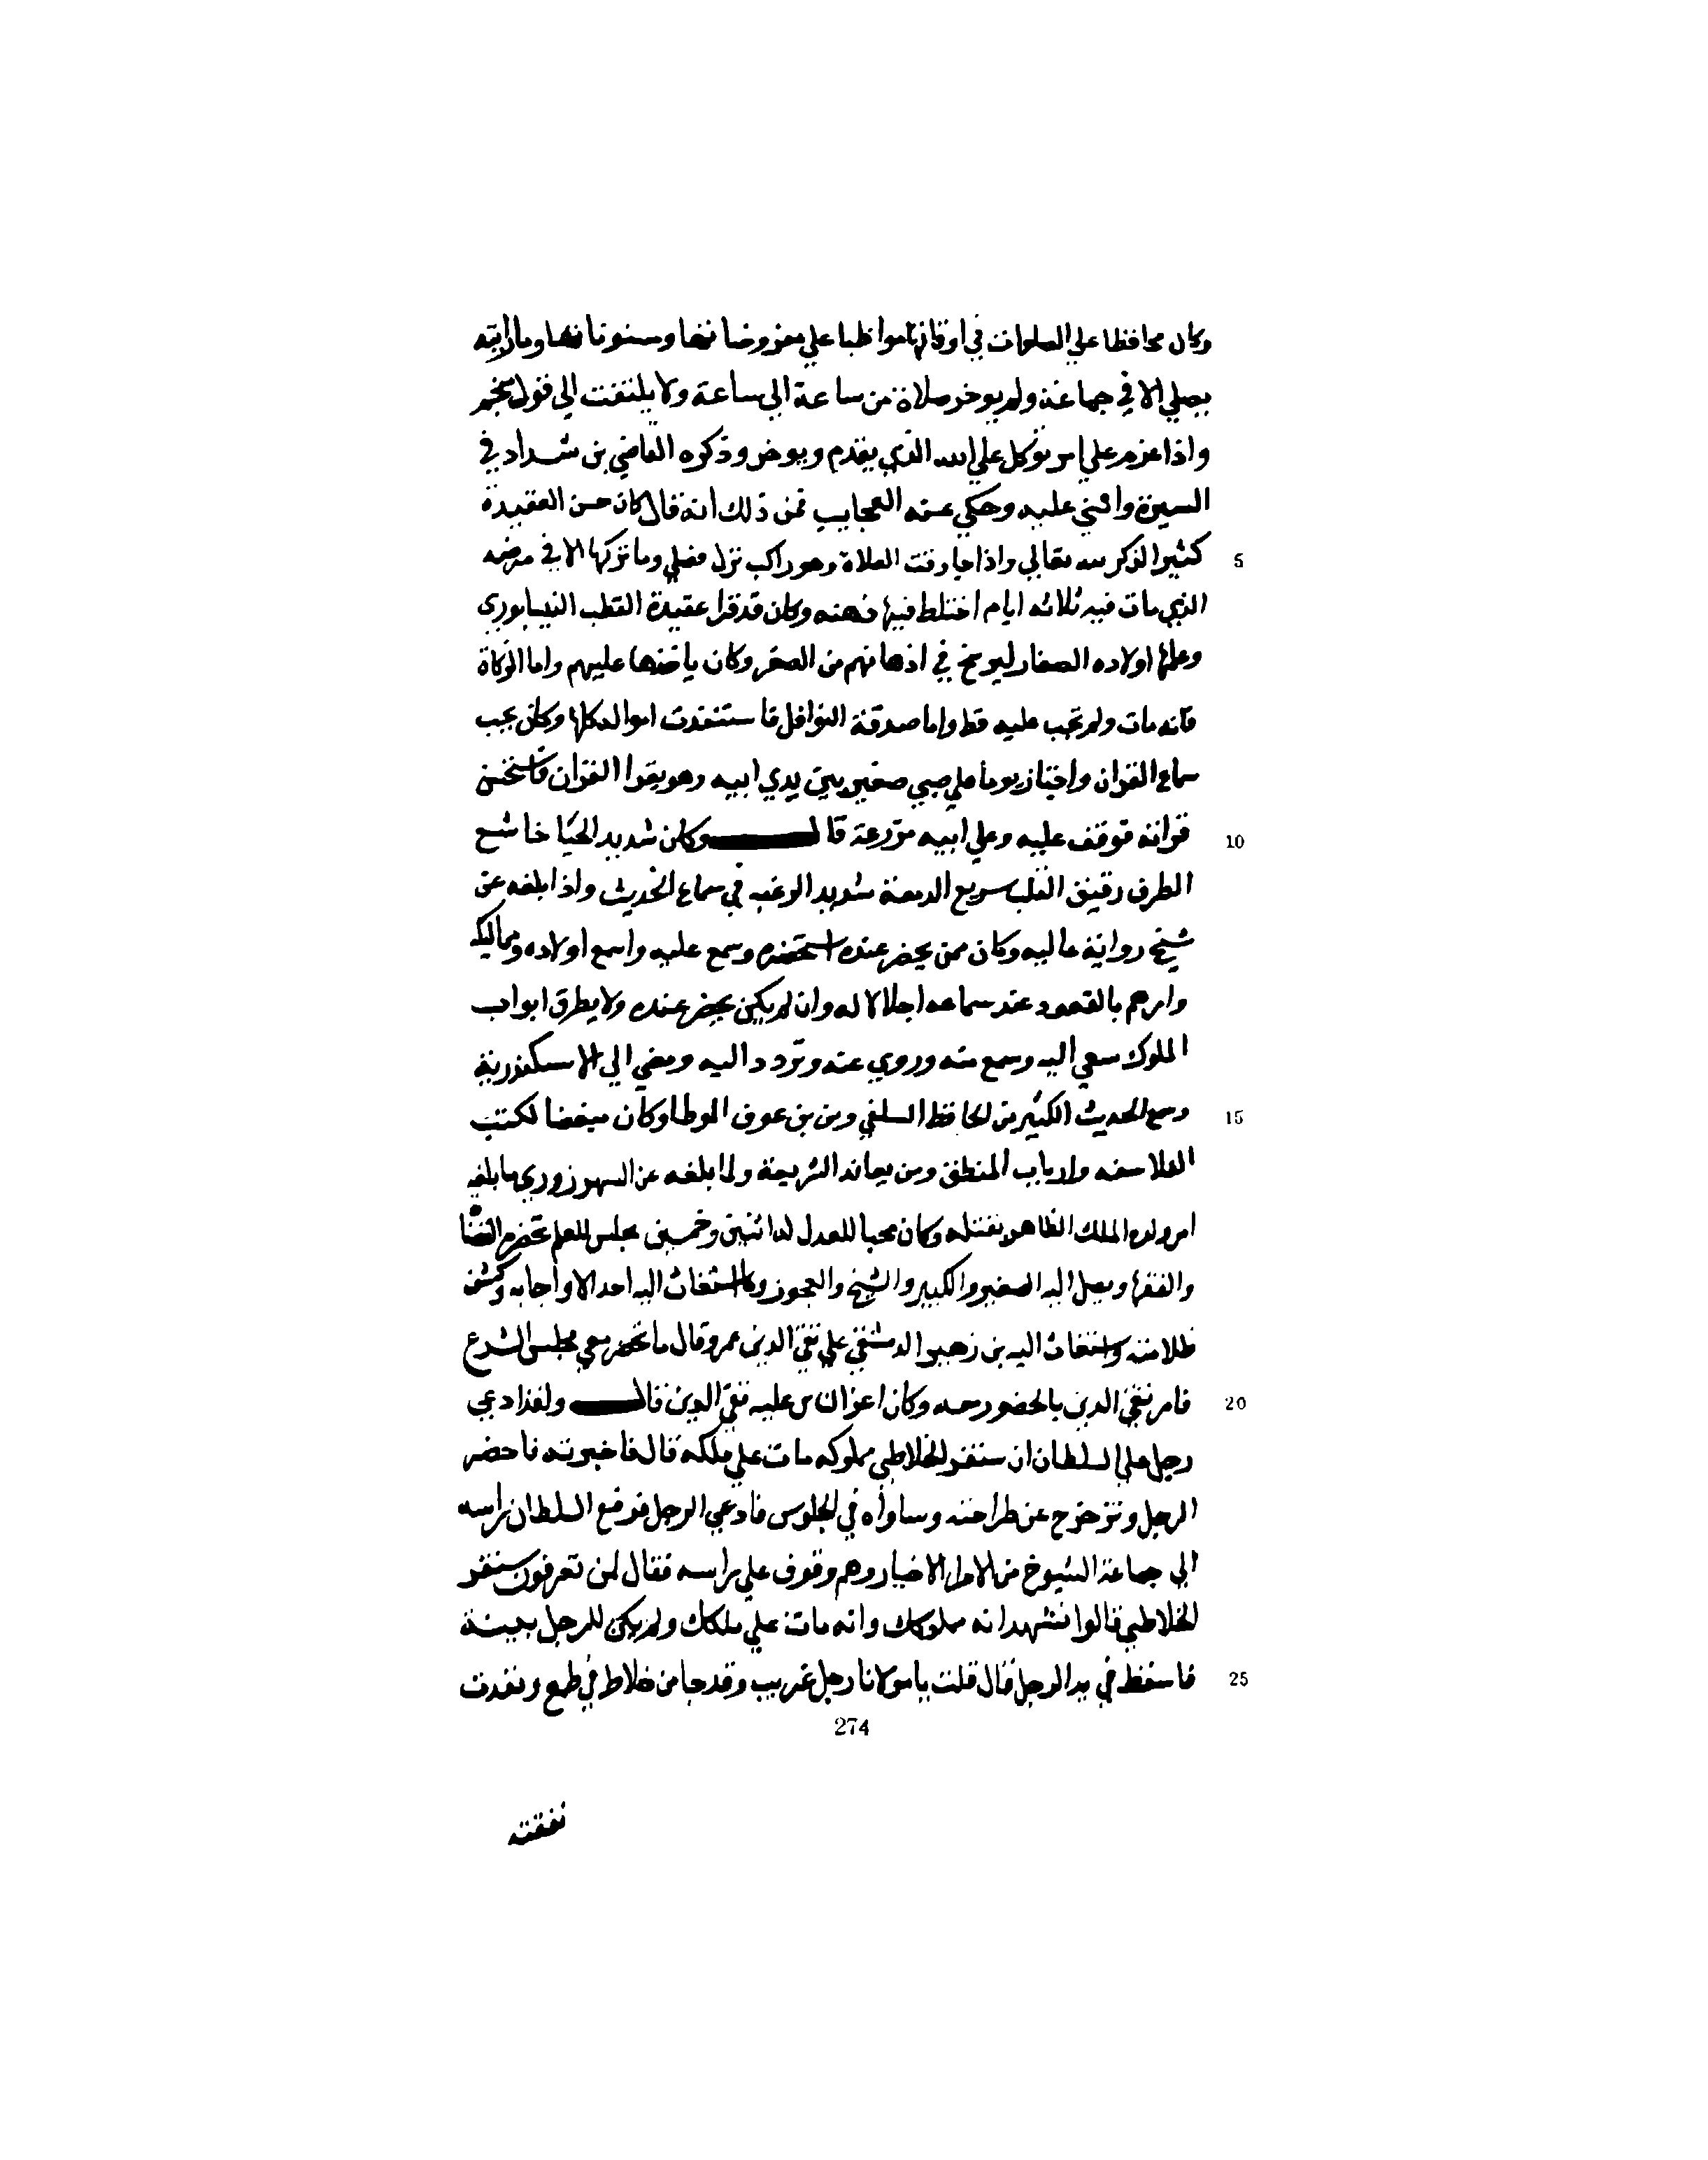 وكان محافظا علي الصلوات في اوقاتها مواظبا علي مفروضاتها ومسنوناتها وما رايته
يصلي الا في جماعة ولم يوخر صلاة من ساعة الي ساعة ولا يلتفت الي قول منجم
واذا عزم علي امر توكل علي الله الذي يقدم ويوخر وذكره القاضي بن شداد في
السيرة واثني عليه وحكي عنه العجايب فمن ذلك انه قال كان حسن العقيدة
5 كثير الذكر لله تعالي واذا جا وقت الصلاة وهو راكب نزل فصلي وما تركها الا في مرضه
الذي مات فيه ثلاثه ايام اختلط فيها ذهنه وكان قد قرا عقيدة القطب النيسابوري
وعلمها اولاده الصغار ليرسخ في اذهانهم من الصغر وكان ياخذها عليهم واما الزكاة
فانه مات ولم تجب عليه قط واما صدقة النوافل فاستنفدت امواله كلها وكان يحب
سماع القران واجتاز يوما علي صبي صغير بين يدي ابيه وهو يقرا القران فاستحسن
10 قراته فوقف عليه وعلي ابيه مزرعة قال وكان شديد الحيا خاشع
الطرف رقيق القلب سريع الدمعة شديد الرغبه في سماع الحديث واذا بلغه عن
شيخ رواية عاليه وكان ممن يحضر عنده استحضره وسمع عليه واسمع اولاده ومماليكه
وامرهم بالقعود عند سماعه اجلالا له وان لم يكن يحضر عنده ولا يطرق ابواب
الملوك سعي اليه وسمع منه وروي عنه وتردد اليه ومضي الي الاسكندرية
15 وسمع الحديث الكثير من الحافظ السلفي ومن بن عوف الموطا وكان مبغضا لكتب
الفلاسفه وارباب المنطق ومن يعاند الشريعة ولما بلغه عن السهروردي ما بلغه
امر ولده الملك الظاهر بقتله وكان محبا للعدل له اثنين وخميس مجلس للعلم تحضره القضا
والفقها ويصل اليه الصغير والكبير والشيخ والعجوز وما استغاث اليه احد الا واجابه وكشف
ظلامته واستغاث اليه بن زهير الدمشقي علي تقي الدين عمر وقال ما تحضر معي مجلس الشرع
20 فامر تقي الدين بالحضور معه وكان اعز الناس عليه تقي الدين قال ولقد ادعي
رجل علي السلطان ان سنقر الخلاطي مملوكه مات علي ملكه قال فاخبرته فاحضر
الرجل وتزحزح عن طراحته وساواه في الجلوس فادعي الرجل فرفع السلطان راسه
الي جماعة الشيوخ من الامرا الاخيار وهم وقوف علي راسه فقال لمن تعرفون سنقر
الخلاطي قالوا نشهد انه مملوكك وانه مات علي ملكك ولم يكن للرجل بينة
25 فاسقط في يد الرجل قال قلت يا مولانا رجل غريب وقد جا من خلاط في طمع ونفدت
274
نفقته